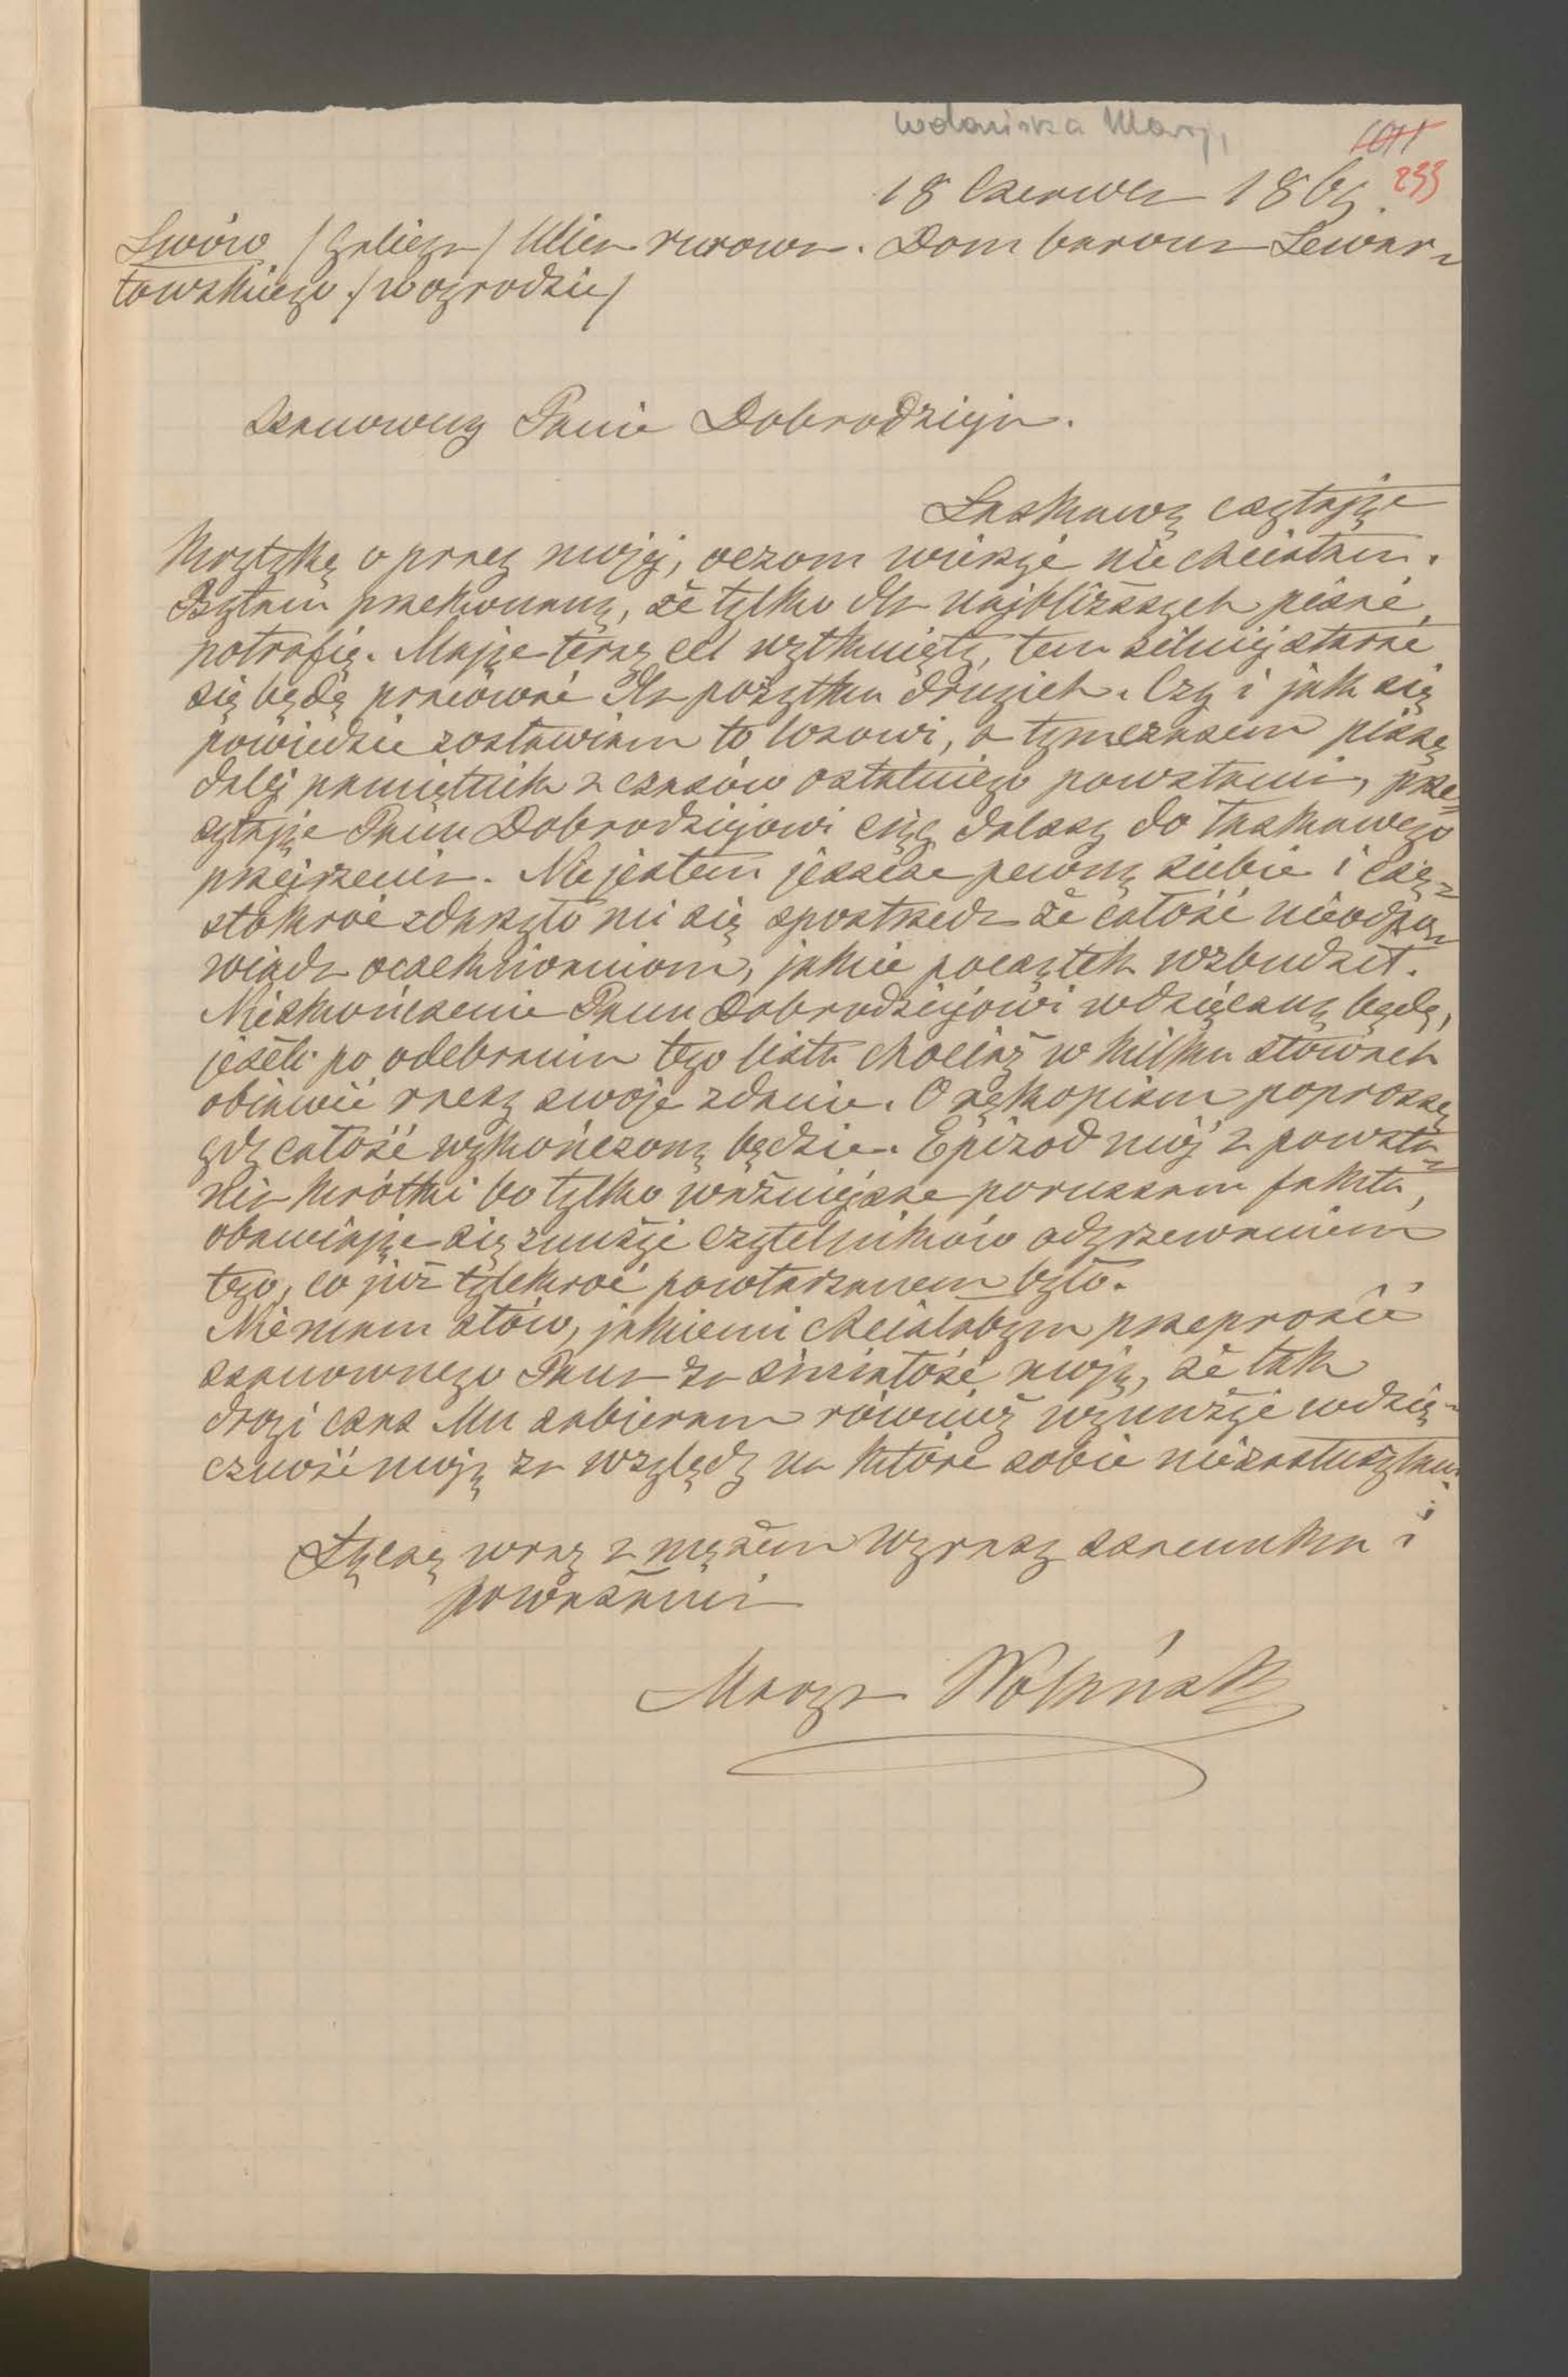 Wolańska Marja
233
18 Czerwca 186
Lwów /Galicya/ Ulica rurowa. Dom barona Lewar-
towskiego. /w ogrodzie/
Szanowny Panie Dobrodzieju.
Łaskawą czytając
krytykę o pracy mojej, oczom wierzyć nie chciałam.
Byłam przekonaną, że tylko dla najbliższych pisać
potrafię. Mając teraz cel wytknięty, tem silniej starać
się będę pracować dla pożytku drugich. Czy i jak się
powiedzie zostawiam to losowi, a tymczasem piszę
dalej pamiętnik z czasów ostatniego powstania, prze-
syłając Panu Dobrodziejowi ciąg dalszy do łaskawego
przejrzenia. Nie jestem jeszcze pewną siebie i czę-
stokroć zdarzyło mi się spostrzedz że całość nieodpo-
wiada oczekiwaniom, jakie początek wzbudził.
Nieskończenie Panu Dobrodziejowi wdzięczną będę,
jeżeli po odebraniu tego listu chociaż w kilku słowach
objawić raczy swoje zdanie. O rękopism poproszę
gdy całość wykończoną będzie. Epizod mój z powsta-
nia krótki bo tylko ważniejsze poruszam fakta,
obawiając się znużyć czytelników odgrzewaniem
tego, co już tylekroć powtarzanem było.
Nie mam słów, jakiemi chciałabym przeprosić
szanownego Pana za śmiałość moją, że tak
drogi czas Mu zabieram równierz wynurzyć wdzię-
czność moją za względy na które sobie niezasłużyłam.
Łączę wraz z mężem wyrazy szacunku i
poważania
Marya Wolańska